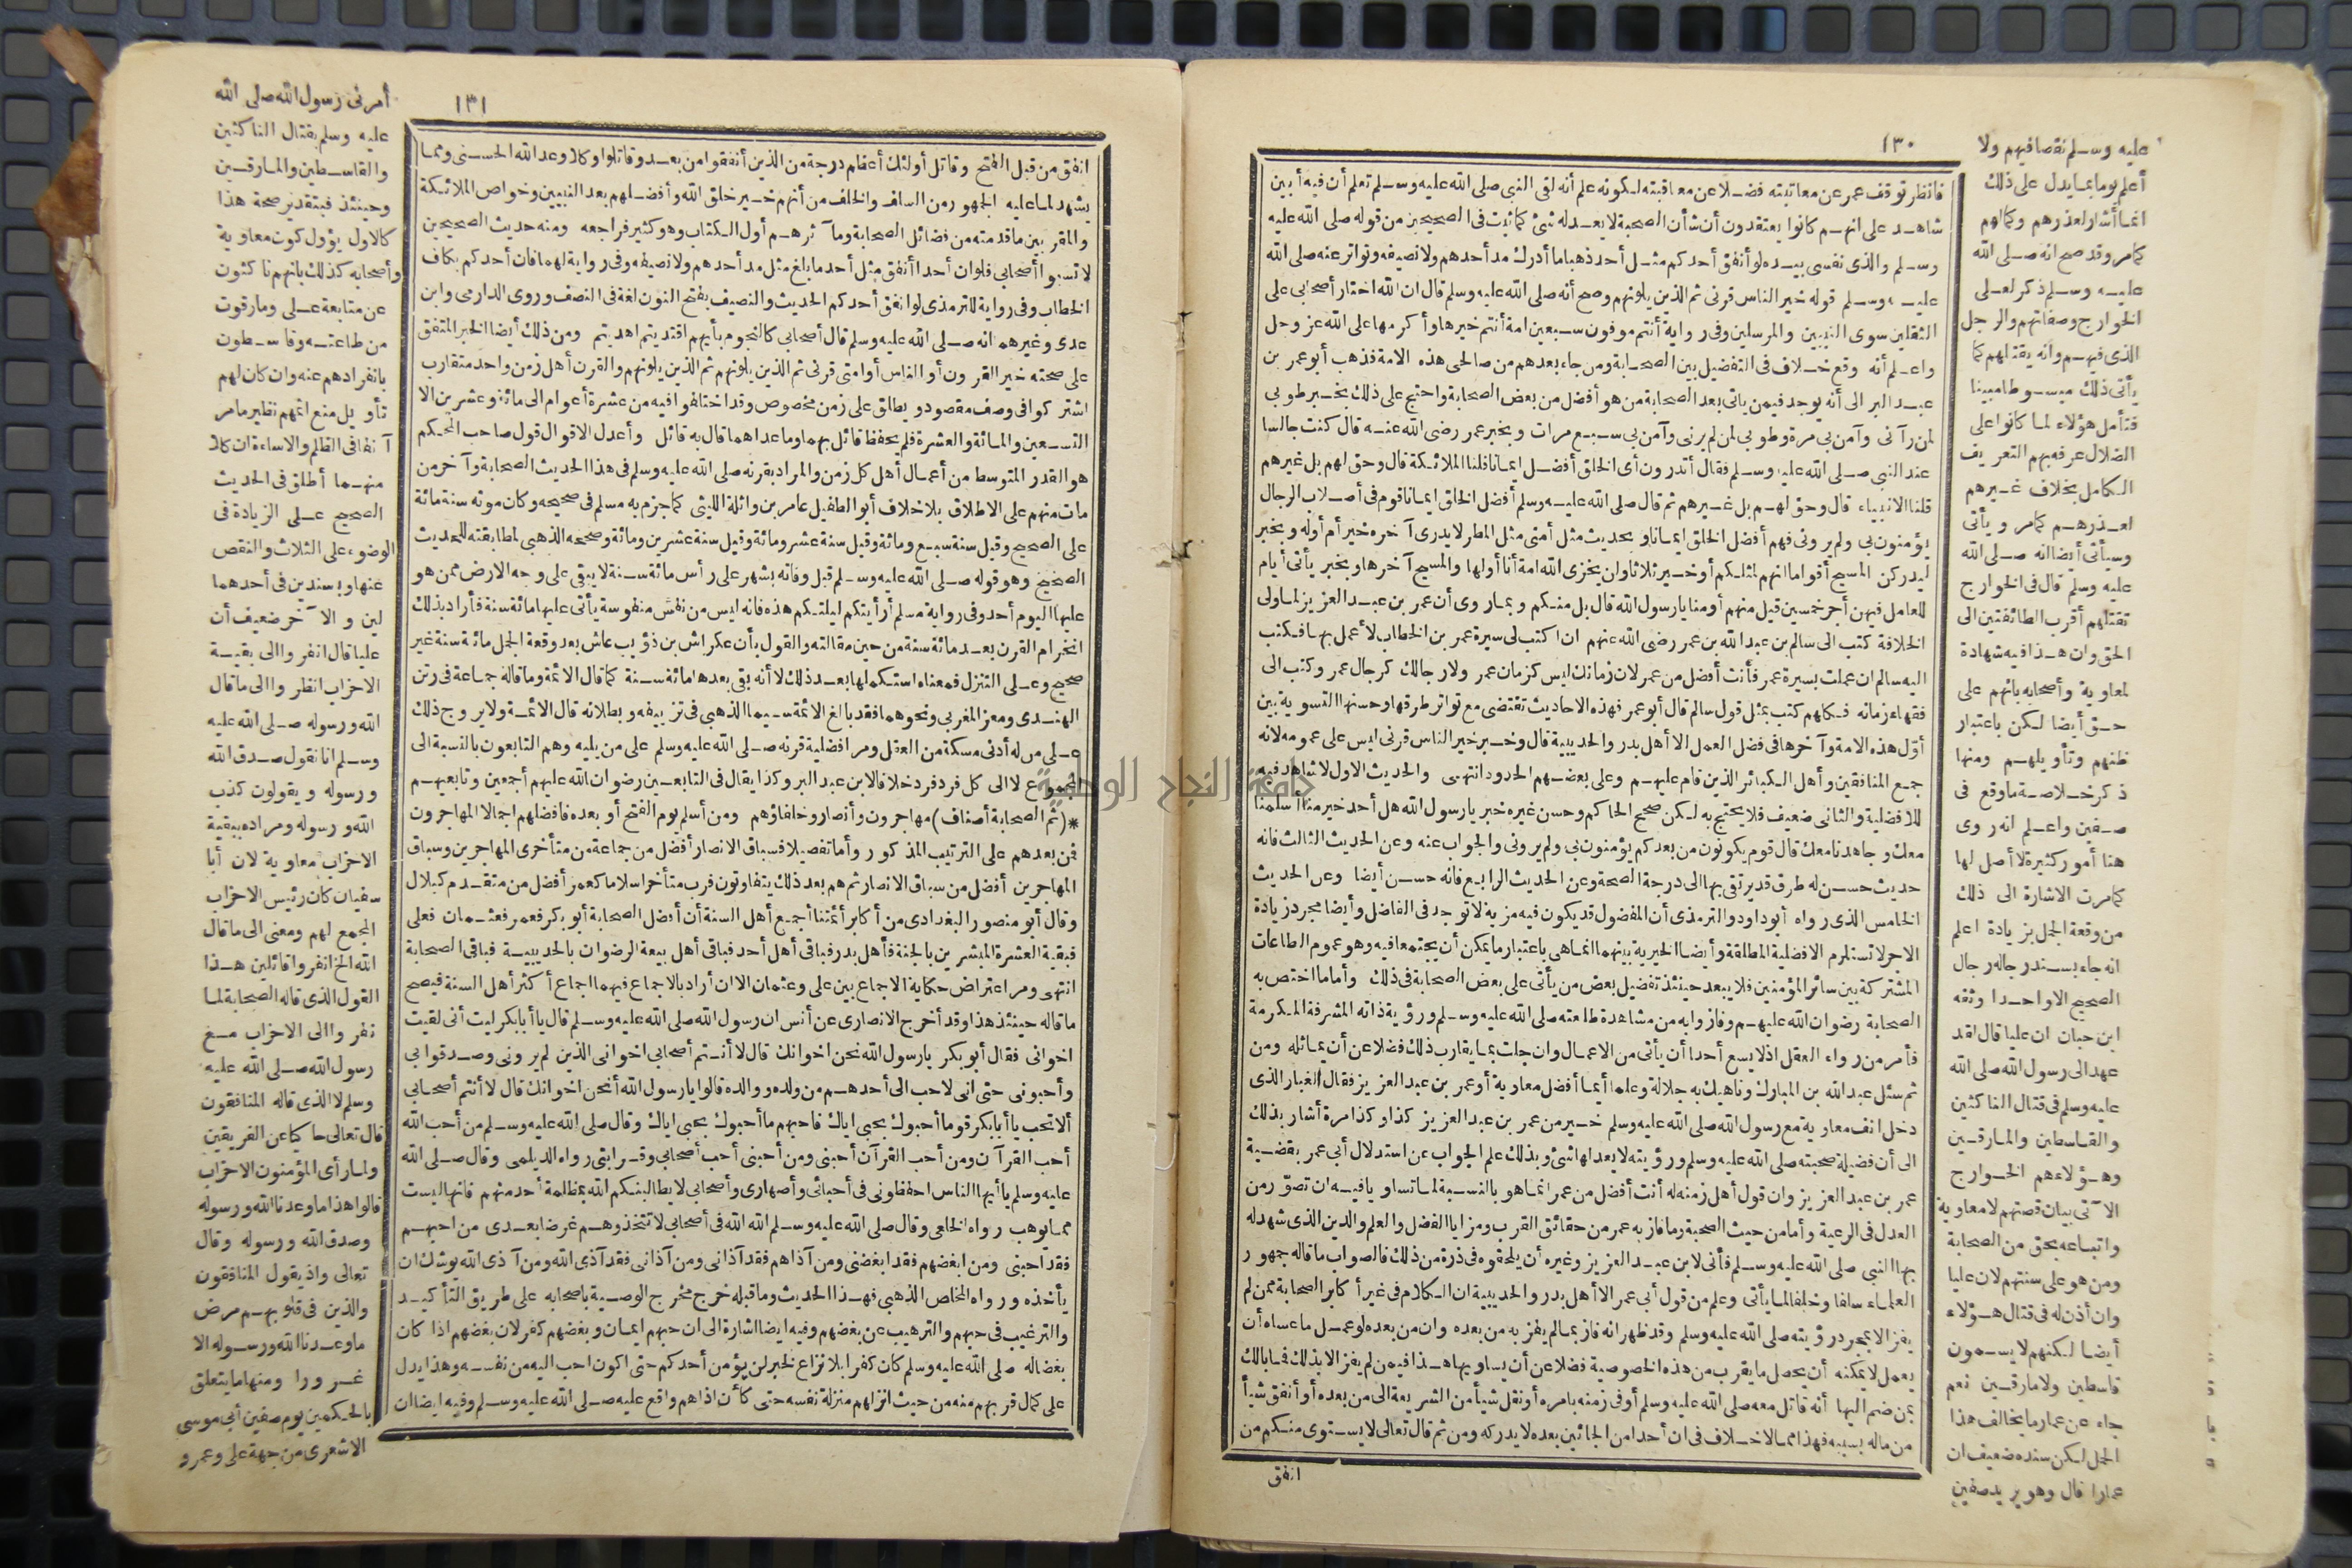 ١٣٠
فانظر توقف عمر عن معاتبته فضلا عن معاقبته لكونه علم أنه لقى النبى صلى الله عليه وسلم تعلم أن فيه أبين
شاهد على انهم كانوا يعتقدون أن شأن الصحبة لا يعدله شئ كما ثبت فى الصحيحين من قوله صلى الله عليه
وسلم والذى نفسى بيده لو أنفق أحدكم مثل أحد ذهبا ما أدرك مد أحدهم ولا نصيفه وتواتر عنه صلى الله
عليه وسلم قوله خير الناس قرنى ثم الذين يلونهم وصح أنه صلى الله عليه وسلم قال ان الله اختار أصحابى على
الثقلين سوى النبيين والمرسلين وفى رواية أنتم موفون سبعين امة أنتم خيرها وأكرمها على الله عز وجل
واعلم أنه وقع خلاف فى التفضيل بين الصحابة ومن جاء بعدهم من صالحى هذه الامة فذهب أبو عمر بن
عبد البر الى أنه يوجد فيمن يأتى بعد الصحابة من هو أفضل من بعض الصحابة واحتج على ذلك بخبر طوبى
لمن رآنى وآمن بى مرة وطوبى لمن لم يرنى وآمن بى سبع مرات وبخبر عمر رضى الله عنه قال كنت جالسا
عند النبى صلى الله عليه وسلم فقال أتدرون أى الخلق أفضل ايمانا قلنا الملائكة قال وحق لهم بل غيرهم
قلنا الانبياء قال وحق لهم بل غيرهم ثم قال صلى الله عليه وسلم أفضل الخلق ايمانا قوم فى أصلاب الرجال
يؤمنون بى ولم يرونى فهم أفضل الخلق ايمانا وبحديث مثل أمتى مثل المطر لا يدرى آخره خير أم أوله وبخبر
ليدركن المسيح أقواما انهم لمثلكم أو خير ثلاثا ولن يخزى الله امة أنا أولها والمسيح آخرها وبخبر يأتى أيام
للعامل فيهن أجر خمسين قيل منهم أو منا يا رسول الله قال بل منكم وبما روى أن عمر بن عبد العزيز لما ولى
الخلافة كتب الى سالم بن عبد الله بن عمر رضى الله عنهم ان اكتب لى سيرة عمر بن الخطاب لأعمل بها فكتب
اليه سالم ان عملت بسيرة عمر فأنت أفضل من عمر لان زمانك ليس كزمان عمر ولا رجالك كرجال عمر وكتب الى
فقهاء زمانه فكلهم كتب بمثل قول سالم قال أبو عمر فهذه الاحاديث تقتضى مع تواتر طرقها وحسنها التسوية بين
أول هذه الامة وآخرها فى فضل العمل الا أهل بدر والحديبية قال وخبر خير الناس قرنى ليس على عمومه لانه
جمع المنافقين وأهل الكبائر الذين قام عليهم وعلى بعضهم الحدود انتهى والحديث الاول لا شاهد فيه
للافضلية والثانى ضعيف فلا يحتج به لكن صحح الحاكم وحسن غيره خبر يا رسول الله هل أحد خير منا أسلمنا
معك وجاهدنا معك قال قوم يكونون من بعدكم يؤمنون بى ولم يرونى والجواب عنه وعن الحديث الثالث فانه
حديث حسن له طرق قد يرتقى بها الى درجة الصحة وعن الحديث الرابع فانه حسن أيضا وعن الحديث
الخامس الذى رواه أبو داود والترمذى أن المفضول قد يكون فيه مزية لا توجد فى الفاضل وأيضا مجرد زيادة
الاجر لا تستلزم الافضلية المطلقة وأيضا الخيرية بينهما انما هى باعتبار ما يمكن أن يجتمعا فيه وهو عموم الطاعات
المشتركة بين سائر المؤمنين فلا يبعد حينئذ تفضيل بعض من يأتى على بعض الصحابة فى ذلك وأما ما اختص به
الصحابة رضوان الله عليهم وفازوا به من مشاهدة طلعته صلى الله عليه وسلم ورؤية ذاته المشرفة المكرمة
فأمر من وراء العقل اذ لا يسع أحدا أن يأتى من الاعمال وان جلت بما يقارب ذلك فضلا عن أن يماثله ومن
ثم سئل عبد الله بن المبارك وناهيك به جلالة وعلما أيما أفضل معاوية أو عمر بن عبد العزيز فقال الغبار الذى
دخل انف معاوية مع رسول الله صلى الله عليه وسلم خير من عمر بن عبد العزيز كذا وكذا مرة أشار بذلك
الى أن فضيلة صحبته صلى الله عليه وسلم ورؤيته لا يعدلها شئ وبذلك علم الجواب عن استدلال أبى عمر بقضية
عمر بن عبد العزيز وان قول أهل زمنه له أنت أفضل من عمر انما هو بالنسبة لما تساويا فيه ان تصور من
العدل فى الرعية وأما من حيث الصحبة وما فاز به عمر من حقائق القرب ومزايا الفضل والعلم والدين الذى شهد له
بها النبى صلى الله عليه وسلم فأنى لابن عبد العزيز وغيره أن يلحقوه فى ذرة من ذلك فالصواب ما قاله جمهور
العلماء سلفا وخلفا لما يأتى وعلم من قول أبى عمر الا أهل بدر والحديبية ان الكلام فى غير أكابر الصحابة ممن لم
يفز الا بمجرد رؤيته صلى الله عليه وسلم وقد ظهر انه فاز بما لم يفز به من بعده وان من بعده لو عمل ما عساه أن
يعمل لا يمكنه أن يحصل ما يقرب من هذه الخصوصية فضلا عن أن يساويها هذا فيمن لم يفز الا بذلك فما بالك
بمن ضم اليها أنه قاتل معه صلى الله عليه وسلم أو فى زمنه بامره أو نقل شيأ من الشريعة الى من بعده أو أنفق شيأ
من ماله بسببه فهذا مما لا خلاف فى ان أحدا من الجائين بعده لا يدركه ومن ثم قال تعالى لا يستوى منكم من
انفق
عليه وسلم نقصا فيهم ولا
أعلم يوما بما يدل على ذلك
انما أشار لعذرهم وكمالهم
كما مر وقد صح انه صلى الله
عليه وسلم ذكر لعلى
الخوارج وصفاتهم والرجل
الذى فيهم وانه يقتلهم كما
يأتى ذلك مبسوطا مبينا
فتأمل هؤلاء لما كانوا على
الضلال عرفه بهم التعريف
الكامل بخلاف غيرهم
لعذرهم كما مر ويأتى
وسيأتى أيضا انه صلى الله
عليه وسلم قال فى الخوارج
تقتلهم أقرب الطائفتين الى
الحق وان هذا فيه شهادة
لمعاوية وأصحابه بانهم على
حق أيضا لكن باعتبار
ظنهم وتأويلهم ومنها
ذكر خلاصة ما وقع فى
صفين واعلم انه روى
هنا أمور كثيرة لا أصل لها
كما مرت الاشارة الى ذلك
من وقعة الجمل بزيادة اعلم
انه جاء بسند رجاله رجال
الصحيح الا واحدا وثقه
ابن حبان ان عليا قال لقد
عهد الى رسول الله صلى الله
عليه وسلم فى قتال الناكثين
والقاسطين والمارقين
وهؤلاء هم الخوارج
الآتى بيان قصتهم لا معاوية
واتباعه بحق من الصحابة
ومن هو على سنتهم لان عليا
وان أذن له فى قتال هؤلاء
أيضا لكنهم لا يسمون
قاسطين ولا مارقين نعم
جاء عن عمار ما يخالف هذا
الحمل لكن سنده ضعيف ان
عمارا قال وهو يريد صفين
١٣١
انفق من قبل الفتح وقاتل أولئك أعظم درجة من الذين أنفقوا من بعد وقاتلوا وكلا وعد الله الحسنى ومما
يشهد لما عليه الجمهور من السلف والخلف من أنهم خير خلق الله وأفضلهم بعد النبيين وخواص الملائكة
والمقربين ما قدمته من فضائل الصحابة ومآثرهم أول الكتاب وهو كثير فراجعه ومنه حديث الصحيحين
لا تسبوا أصحابى فلو ان أحدا أنفق مثل أحد ما بلغ مثل مد أحدهم ولا نصيفه وفى رواية لهما فان أحدكم بكاف
الخطاب وفى رواية للترمذى لو انفق أحدكم الحديث والنصيف بفتح النون لغة فى النصف وروى الدارمى وابن
عدى وغيرهما انه صلى الله عليه وسلم قال أصحابى كالنجوم بأيهم اقتديتم اهتديتم ومن ذلك أيضا الخبر المتفق
على صحته خير القرون أو الناس أو امتى قرنى ثم الذين يلونهم ثم الذين يلونهم والقرن أهل زمن واحد متقارب
اشتركوا فى وصف مقصود ويطلق على زمن مخصوص وقد اختلفوا فيه من عشرة أعوام الى مائة وعشرين الا
التسعين والمائة والعشرة فلم يحفظ قائل بهما وما عداهما قال به قائل وأعدل الاقوال قول صاحب المحكم
هو القدر المتوسط من أعمال أهل كل زمن والمراد بقرنه صلى الله عليه وسلم فى هذا الحديث الصحابة وآخر من
مات منهم على الاطلاق بلا خلاف أبو الطفيل عامر بن واثلة الليثى كما جزم به مسلم فى صحيحه وكان موته سنة مائة
على الصحيح وقيل سنة سبع ومائة وقيل سنة عشر ومائة وقيل سنة عشرين ومائة وصححه الذهبى لمطابقته للحديث
الصحيح وهو قوله صلى الله عليه وسلم قبل وفاته بشهر على رأس مائة سنة لا يبقى على وجه الارض ممن هو
عليها اليوم أحد وفى رواية مسلم أرأيتكم ليلتكم هذه فانه ليس من نفس منفوسة يأتى عليها مائة سنة فأراد بذلك
انخرام القرن بعد مائة سنة من حين مقالته والقول بأن عكراش بن ذؤيب عاش بعد وقعة الجمل مائة سنة غير
صحيح وعلى التنزل فمعناه استكملها بعد ذلك لا أنه بقى بعدها مائة سنة كما قال الائمة وما قاله جماعة فى رتن
الهندى ومعمر المغربى ونحوهما فقد بالغ الائمة سيما الذهبى فى تزييفه وبطلانه قال الائمة ولا يروج ذلك
على من له أدنى مسكة من العقل ومر افضلية قرنه صلى الله عليه وسلم على من يليه وهم التابعون بالنسبة الى
المجموع لا الى كل فرد فرد خلافا لابن عبد البر وكذا يقال فى التابعين رضوان الله عليهم أجمعين وتابعيهم
*(ثم الصحابة أصناف) مهاجرون وأنصار وخلفاؤهم ومن أسلم يوم الفتح أو بعده فأفضلهم اجمالا المهاجرون
فمن بعدهم على الترتيب المذكور وأما تفصيلا فسباق الانصار أفضل من جماعة من متأخرى المهاجرين وسباق
المهاجرين أفضل من سباق الانصار ثم هم بعد ذلك يتفاوتون فرب متأخر اسلاما كعمر أفضل من متقدم كبلال
وقال أبو منصور البغدادى من أكابر أئمتنا أجمع أهل السنة أن أفضل الصحابة أبو بكر فعمر فعثمان فعلى
فبقية العشرة المبشرين بالجنة فأهل بدر فباقى أهل أحد فباقى أهل بيعة الرضوان بالحديبية فباقى الصحابة
انتهى ومر اعتراض حكاية الاجماع بين على وعثمان الا ان أراد بالاجماع فيهما اجماع أكثر أهل السنة فيصح
ما قاله حينئذ هذا وقد أخرج الانصارى عن أنس ان رسول الله صلى الله عليه وسلم قال يا أبا بكر ليت أنى لقيت
اخوانى فقال أبو بكر يا رسول الله نحن اخوانك قال لا أنتم أصحابى اخوانى الذين لم يرونى وصدقوا بى
وأحبونى حتى انى لاحب الى أحدهم من ولده ووالده قالوا يا رسول الله أنحن اخوانك قال لا أنتم أصحابى
ألا تحب يا أبا بكر قوما أحبوك بحبى اياك فاحبهم ما أحبوك بحبى اياك وقال صلى الله عليه وسلم من أحب الله
أحب القرآن ومن أحب القرآن أحبنى ومن أحبنى أحب أصحابى وقرابتى رواه الديلمى وقال صلى الله
عليه وسلم يا أيها الناس احفظونى فى أحبائى وأصهارى وأصحابى لا يطالبنكم الله بمظلمة أحد منهم فانها ليست
مما يوهب رواه الخلعى وقال صلى الله عليه وسلم الله الله فى أصحابى لا تتخذوهم غرضا بعدى من احبهم
فقد احبنى ومن ابغضهم فقد ابغضنى ومن آذاهم فقد آذانى ومن آذانى فقد آذى الله ومن آذى الله يوشك ان
يأخذه ورواه المخلص الذهبى فهذا الحديث وما قبله خرج مخرج الوصية باصحابه على طريق التأكيد
والترغيب فى حبهم والترهيب عن بغضهم وفيه ايضا اشارة الى ان حبهم ايمان وبغضهم كفر لان بغضهم اذا كان
بغضا له صلى الله عليه وسلم كان كفرا بلا نزاع لخبر لن يؤمن أحدكم حتى اكون احب اليه من نفسه وهذا يدل
على كمال قربهم منه من حيث انزالهم منزلة نفسه حتى كأن اذاهم واقع عليه صلى الله عليه وسلم وفيه ايضا ان
أمرنى رسول الله صلى الله
عليه وسلم بقتال الناكثين
والقاسطين والمارقين
وحينئذ فبتقدير صحة هذا
كالاول يؤول كون معاوية
وأصحابه كذلك بانهم ناكثون
عن متابعة على ومارقون
من طاعته وقاسطون
بانفرادهم عنه وان كان لهم
تأويل منع اثمهم نظير ما مر
آنفا فى الظلم والاساءة ان كلا
منهما أطلق فى الحديث
الصحيح على الزيادة فى
الوضوء على الثلاث والنقص
عنها وبسندين فى أحدهما
لين والآخر ضعيف أن
عليا قال انفروا الى بقية
الاحزاب انظروا الى ما قال
الله ورسوله صلى الله عليه
وسلم انا نقول صدق الله
ورسوله ويقولون كذب
الله ورسوله ومراده ببقية
الاحزاب معاوية لان أبا
سفيان كان رئيس الاحزاب
المجمع لهم ومعنى الى ما قال
الله الخ انفروا قائلين هذا
القول الذى قاله الصحابة لما
نفروا الى الاحزاب مع
رسول الله صلى الله عليه
وسلم لا الذى قاله المنافقون
قال تعالى حاكيا عن الفريقين
ولما رأى المؤمنون الاحزاب
قالوا هذا ما وعدنا الله ورسوله
وصدق الله ورسوله وقال
تعالى واذ يقول المنافقون
والذين فى قلوبهم مرض
ما وعدنا الله ورسوله الا
غرورا ومنها ما يتعلق
بالحكمين يوم صفين أبى موسى
الاشعرى من جهة على وعمرو
جامعة النجاح الوطنية